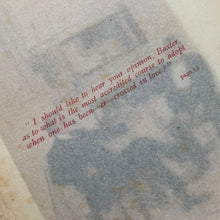 "I should like to hear your opinion, Baxter,
as to what is the most accredited course to adopt
when one has been er—crossed in love?"
page